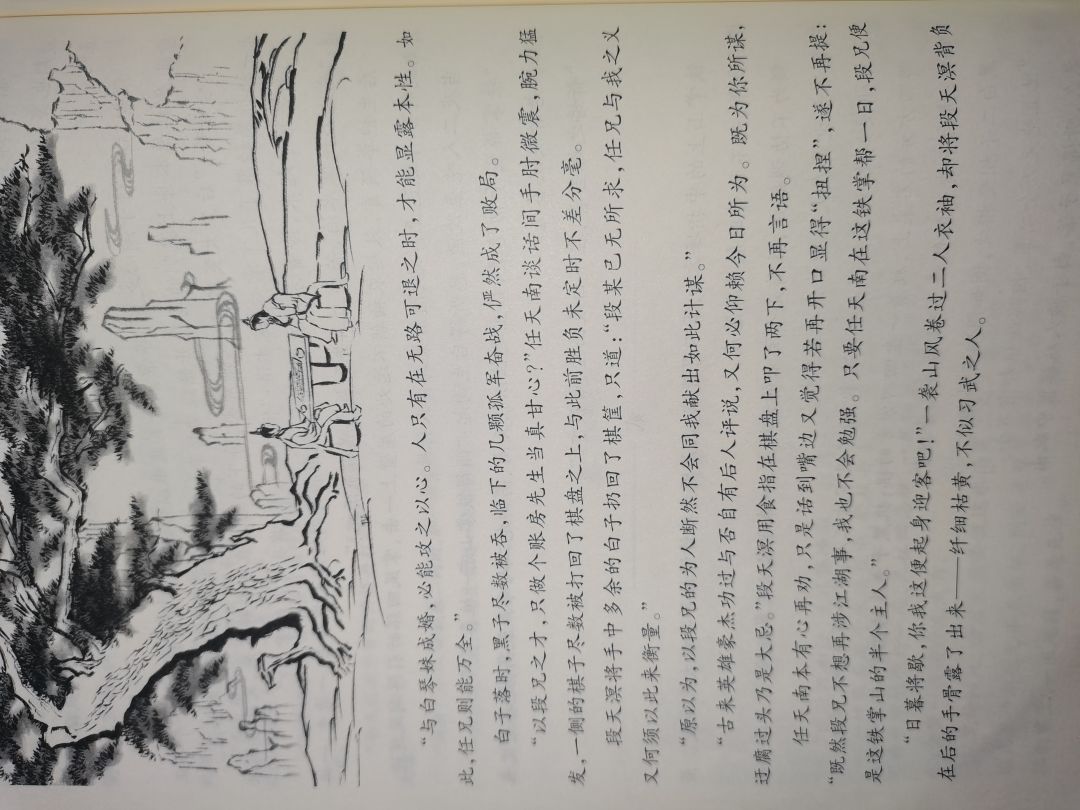 “与白琴妹成婚，必能攻之以心。人只有在无路可退之时，才能显露本性。如
此，任兄则能万全。”
白子落时，黑子尽数被吞，临下的几颗孤军奋战，俨然成了败局。
“以段兄之才，只做个账房先生当真甘心？”任天南谈话间手肘微震，腕力猛
发，一侧的棋子尽数被打回了棋盘之上，与此前胜负未定时不差分毫。
段天溟将手中多余的白子扔回了棋筐，只道：“段某已无所求，任兄与我之义
又何须以此来衡量。”
“原以为，以段兄的为人断然不会同我献出如此计谋。”
“古来英雄豪杰功过与否自有后人评说，又何必仰赖今日所为。既为你所谋，
迂腐过头乃是大忌。”段天溟用食指在棋盘上叩了两下，不再言语。
任天南本有心再劝，只是话到嘴边又觉得若再开口显得“扭捏”，遂不再提：
“既然段兄不想再涉江湖事，我也不会勉强。只要任天南在这铁掌帮一日，段兄便
是这铁掌山的半个主人。”
“日暮将歇，你我这便起身迎客吧！”一袭山风卷过二人衣袖，却将段天溟背负
在后的手骨露了出来——纤细枯黄，不似习武之人。